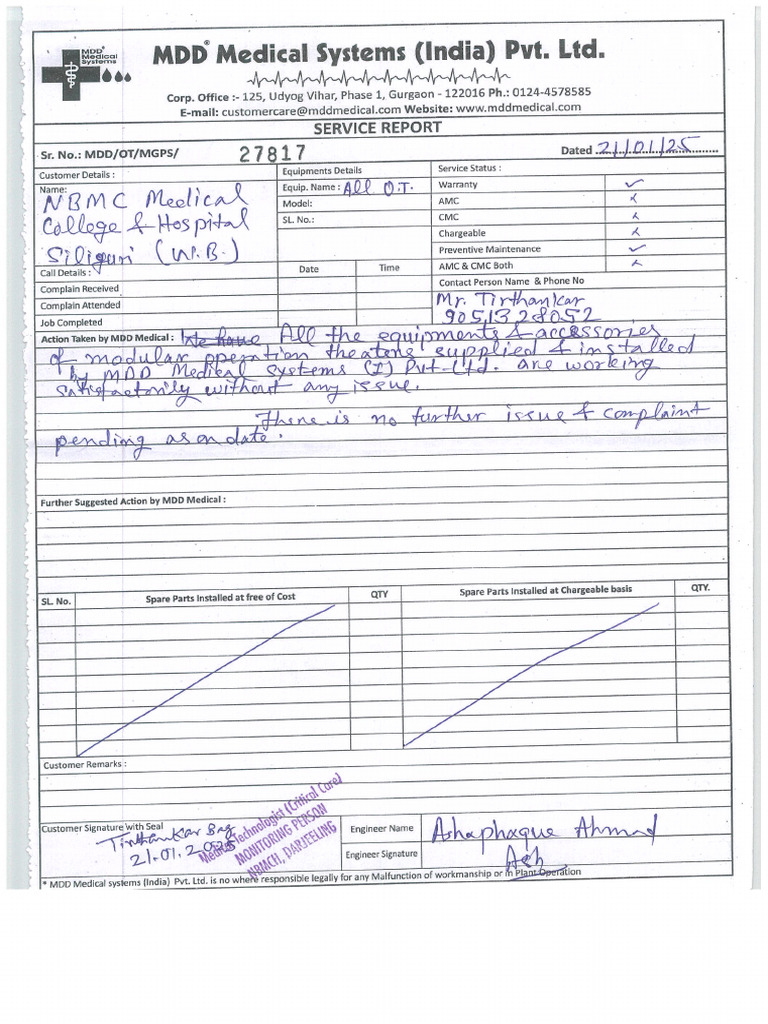 MDD Medical Systems
MDD® Medical Systems (India) Pvt. Ltd.
Corp. Office :- 125, Udyog Vihar, Phase 1, Gurgaon - 122016 Ph.: 0124-4578585
E-mail: customercare@mddmedical.com Website: www.mddmedical.com
SERVICE REPORT
Sr. No.: MDD/OT/MGPS/ 27817 Dated 21/01/25
Customer Details :
Name:
NBMC Medical
College & Hospital
Siliguri (W.B.)
Equipments Details
Equip. Name : All O.T.
Model:
SL. No.:
Service Status :
Warranty ✓
AMC x
CMC x
Chargeable x
Preventive Maintenance ✓
AMC & CMC Both x
Call Details : Date Time
Complain Received
Complain Attended
Job Completed
Contact Person Name & Phone No
Mr. Tirthankar
9051328052
Action Taken by MDD Medical : We have All the equipments & accessories
of modular operation theaters supplied & installed
by MDD Medical Systems (I) Pvt. Ltd. are working
satisfactorily without any issue.
There is no further issue & complaint
pending as on date.
Further Suggested Action by MDD Medical :
SL. No. Spare Parts Installed at free of Cost QTY Spare Parts Installed at Chargeable basis QTY.
Customer Remarks :
Customer Signature with Seal
Tirthankar Bag
21.01.2025
Technologist (Critical Care)
MONITORING PERSON
NBMCH, DARJEELING
Engineer Name Ashaphaque Ahmad
Engineer Signature Ash
* MDD Medical systems (India) Pvt. Ltd. is no where responsible legally for any Malfunction of workmanship or in Plant Operation